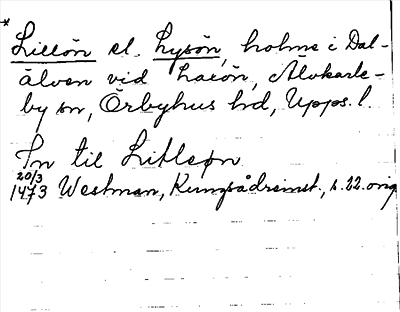 * Lillön el. Lysön, holme i Dal-
älven vid Laxön, Älvkarle-
by sn, Örbyhus hd, Upps. l.
In til Litleøn
20/3
1473 Westman, Kungsådreinst., s. 22. orig